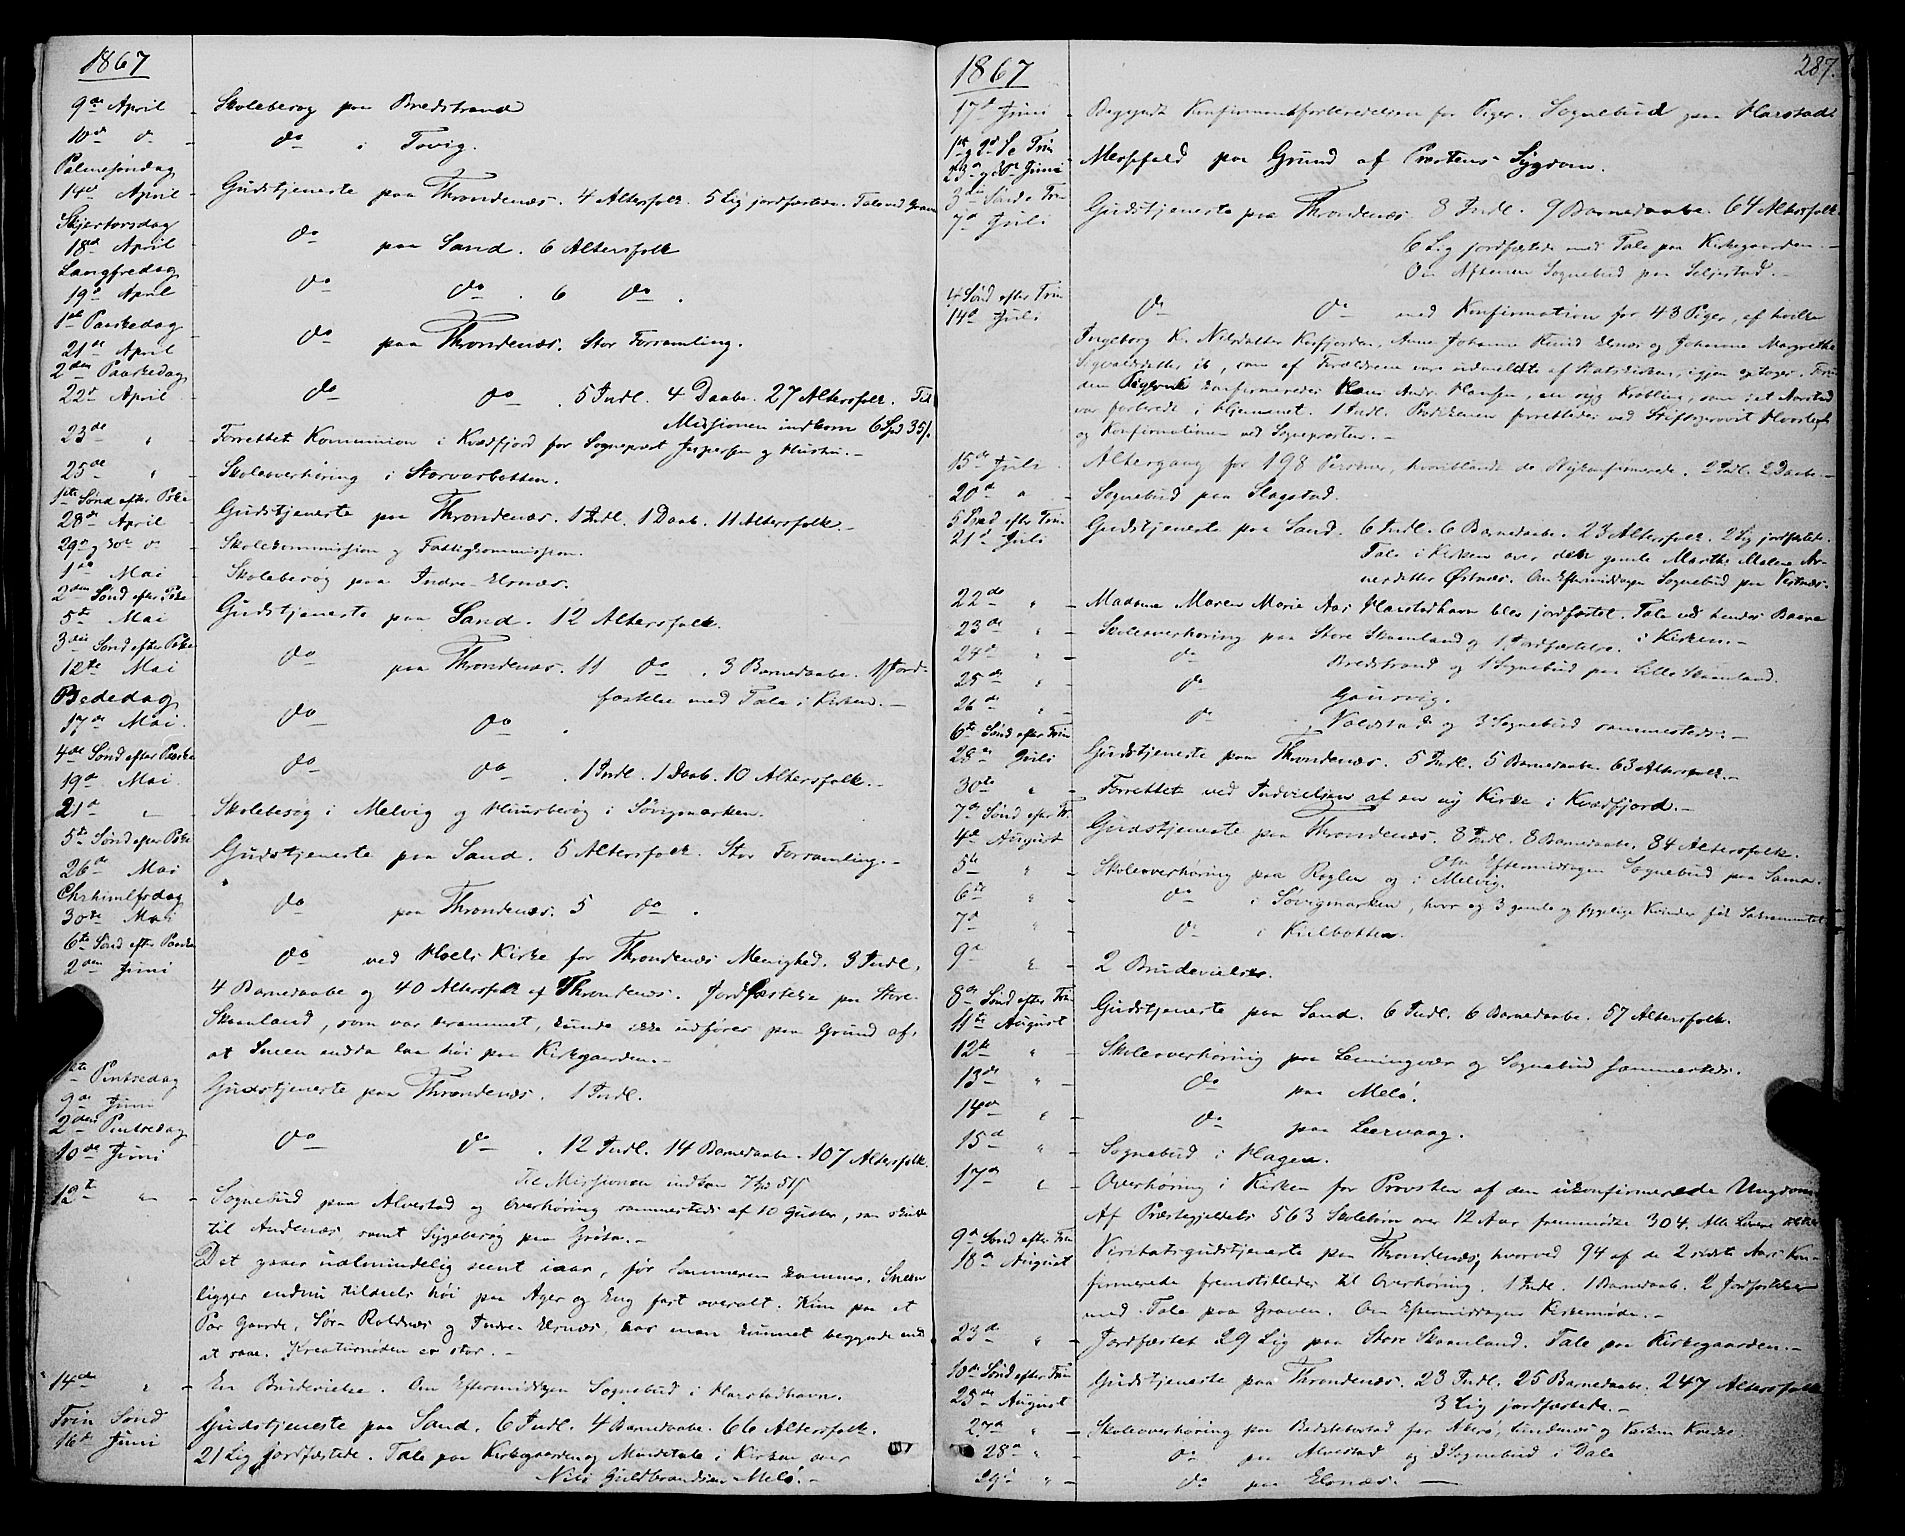 1867
9de April - Skolebesøg paa Bredstrand
10de do - do i Tovig.
Palmesøndag
14de April - Gudstjeneste paa Throndenæs. 4 Altersfolk. 5 Lig jordfæstede. Tale ved Graven
Skjertorsdag
18de April - do paa Sand. 6 Altersfolk
Langfredag
19de April do do. 6 do.
1ste Paaskedag
21de April do paa Throndenæs. Stor Forsamling.
2den Paaskedag
22de April do do. 5 Indl. 4 Daab. 27 Altersfolk. Til
Missionen indkom 6 Spd 35 s.
23de " Forrettet Kommunion i Kvædfjord for Sognepræst Jespersen og Hustru.-
25de " - Skoleoverhøring i Storvarbotten.
1ste Sønd efter Paaske
28de April - Gudstjeneste paa Throndenæs. 1 Indl. 1 Daab. 11 Altersfolk.-
29de og 30te do - Skolekommission og Fattigkommission.
1ste Mai - Skolebesøg paa Indre-Elsnæs.
2den Sønd efter Paaske
5te Mai Gudstjeneste paa Sand. 12 Altersfolk.
3die Sønd efter Paaske
12te Mai do paa Throndenæs. 11 do. 3 Barnedaab. 1 Jord-
fæstelse med Tale i Kirken.-
Bededag
17de Mai. do do.
4de Sønd efter Paaske
19de Mai. do do. 1 Indl. 1 Daab. 10 Altersfolk.-
21de " - Skolebesøg i Melvig og Huusbesøg i Søvigmarken.
5te Sønd efter Paaske
26de Mai Gudstjeneste paa Sand. 5 Altersfolk. Stor Forsamling.-
Chrhimlfsdag
30te Mai do paa Throndenæs. 5 do.
6te Sønd efter Paaske
2den Juni do ved Hoels Kirke for Throndenæs Menighed. 3 Indl.
4 Barnedaabe og 40 Altersfolk af Throndenæs. Jordfæstelse paa Store-
Skaanland, som var berammet, kunde ikke udføres paa Grund af,
at Sneen endda laa høi paa Kirkegaarden.-
1ste Pintsedag
9de Juni Gudstjeneste paa Throndenæs. 1 Indl.
2den Pintsedag
10de Juni do do. 12 Indl. 14 Barnedaabe. 107 Altersfolk.
Til Missionen indkom 7
12te " - Sognebud paa Alvestad og Overhøring sammesteds af 10 Gutter, som skulde
til Andenæs, samt Sygebesøg paa Grøtø.-
Det gaaer ualmindelig seent iaar, før Sommeren kommer. Sneen
ligger endnu tildeels høi paa Ager og Eng fast overalt. Kun paa et
Par Gaarde, Søre Roldnæs og Indre Elsnæs, har man kunnet begynde med
at saae. Kreaturnøden er stor.-
14de " - En Brudevielse. Om Eftermiddagen Sognebud i Harstadhavn.
Trin Sønd
16de Juni Gudstjeneste paa Sand. 6 Indl. 4 Barnedaabe. 66 Altersfolk.
21 Lig jordfæstede. Tale paa Kirkegaarden og Mindetale i Kirken over
Nils Guldbrandsen Melø.-
1867 287.
17de Juni - Begyndt Konfirmantforberedelsen for Piger. Sognebud paa Harstad.
1ste og 2den S. e. Trin
23de og 30te Juni Messefald paa Grund af Præstens Sygdom.
3die Sønd e Trin
7de Juli Gudstjeneste paa Throndenæs. 8 Indl. 9 Barnedaabe. 64 Altersfolk.
6 Lig jordfæstede med Tale paa Kirkegaarden.-
Om Aftenen Sognebud paa Seljestad.-
4 Sønd efter Trin
14de Juli do do med Konfirmation for 43 Piger, af hvilke
Ingeborg K. Nilsdatter Kasfjorden, Anne Johanne Elsnæs og Johanne Margrethe
ib, som af Forældrene vare udmeldte af Statskirken, igjen optoges. For-
uden Pigerne konfirmeredes Hans Andr. Hansen, en syg Krøbling, som i et Aarstid
var forberedt i Hjemmet. 1 Indl. Prædikenen forrettedes ved Stiftsprovst
og Konfirmationen ved Sognepræsten.-
15de Juli Altergang for 198 Personer, hvoriblandt de Nykonfirmerede. 2 Indl. 2 Daab.-
20de " - Sognebud paa Slagstad.
5 Sønd efter Trin
21de Juli Gudstjeneste paa Sand. 6 Indl. 6 Barnedaabe. 23 Altersfolk. 2 Lig jordfæstede.
Tale i Kirken over den gamle Marthe Malene Ar-
nesdatter Østnæs. Om Eftermiddagen Sognebud paa Vestnæs.
22de " - Madame Maren Marie Aas Harstadhavn blev jordfæstet. Tale ved hendes Baare
i Kirken.-
23de " - Skoleoverhøring paa Store Skaanland og 1 Jordfæstelse.
24de " - do Bredstrand og 1 Sognebud paa Lille Skaanland.
25de " - do Gausvig.
26de " - do Voldstad og 3 Sognebud sammesteds.-
6te Sønd efter Trin
28de Juli Gudstjeneste paa Throndenæs. 5 Indl. 5 Barnedaabe. 63 Altersfolk.-
30te " - Forrettet ved Indvielsen af en ny Kirke i Kvædfjord.-
7de Sønd efter Tr.
4de August Gudstjeneste paa Throndenæs. 8 Indl. 8 Barnedaabe. 84 Altersfolk.
Om Eftermiddagen Sognebud paa Sama.
5te " - Skoleoverhøring paa Roglen og i Melvig.
6te " - do i Søvigmarken, hvor og 3 gamle og sygelige Kvinder fik Sakramentet.
7de " do i Kielbotten.
9de " - 2 Brudevielser.
8de Sønd efter Trin
11te August Gudstjeneste paa Sand. 6 Indl. 6 Barnedaabe. 57 Altersfolk.
12te " - Skoleoverhøring paa Lemingvær og Sognebud sammesteds.
13de " - do paa Melø.
14de " - do paa Leervaag.
15de " - Sognebud i Hagen.
17de " - Overhøring i Kirken for Provsten af den ukonfirmerede Ungdom.
Af Præstegjeldets 563 Skolebørn over 12 Aar fremmødte 304. Alle Lærere
9de Sønd efter Trin
18de August Visitatsgudstjeneste paa Throndenæs, hvorved 94 af de 2 sidste Aars Kon-
firmerede fremstilledes til Overhøring. 1 Indl. 1 Barnedaab. 2 Jordfæstelser
med Tale paa Graven. Om Eftermiddagen Kirkemøde.-
23de " - Jordfæstet 29 Lig paa Store Skaanland. Tale paa Kirkegaarden.-
10de Sønd efter Trin
25de August Gudstjeneste paa Throndenæs. 23 Indl. 25 Barnedaabe. 247 Altersfolk
3 Lig jordfæstede.-
27de " - Skoleoverhøring paa for og
28de " - do paa Alvestad og 3 Sognebud i Dale
29de " do paa Elsnæs.-